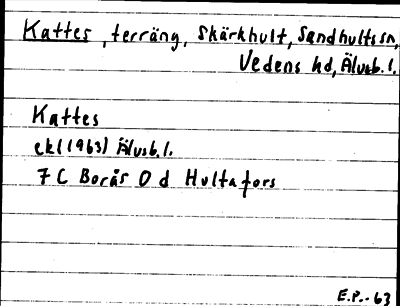 Kattes, terräng, Skärkhult, Sandhults sn,
Vedens hd, Älvsb. l.
Kattes
ek (1963) Älvsb. l.
7 C Borås 0 d Hultafors
E.P.-63